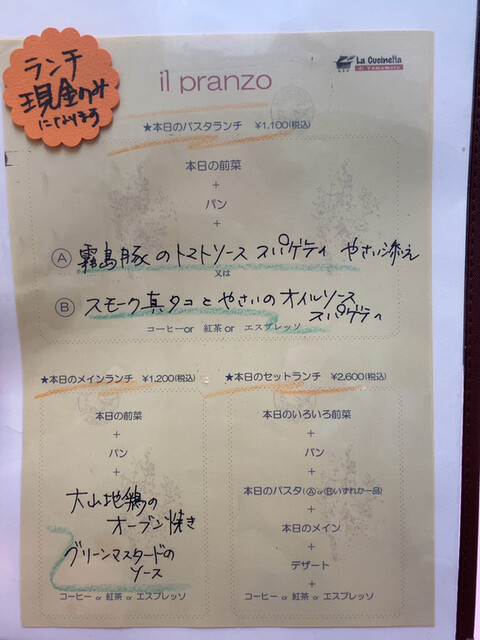 ランチ
現金のみ
になります
La Cucinetta
di Yamamoto
il pranzo
★本日のパスタランチ ¥1,100(税込)
本日の前菜
+
パン
+
Ⓐ 霧島豚のトマトソース スパゲティ やさい添え
又は
Ⓑ スモーク真タコとやさいのオイルソース
スパゲティ
コーヒーor 紅茶 or エスプレッソ
★本日のメインランチ ¥1,200(税込)
本日の前菜
+
パン
+
大山地鶏の
オーブン焼き
グリーンマスタードの
ソース
コーヒー or 紅茶 or エスプレッソ
★本日のセットランチ ¥2,600(税込)
本日のいろいろ前菜
+
パン
+
本日のパスタ(Ⓐ or Ⓑいずれか一品)
+
本日のメイン
+
デザート
+
コーヒー or 紅茶 or エスプレッソ